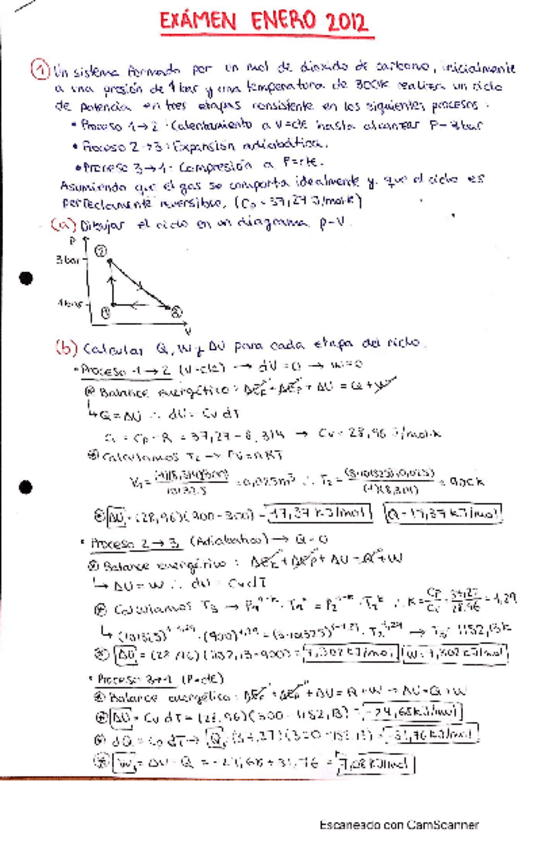 EXÁMEN ENERO 2012
① Un sistema formado por un mol de dióxido de carbono, inicialmente
a una presión de 1 bar y una temperatura de 300K realiza un ciclo
de potencia en tres etapas consistente en los siguientes procesos:
• Proceso 1→2: Calentamiento a V=cte hasta alcanzar P=3bar
• Proceso 2→3: Expansión adiabática.
• Proceso 3→1: Compresión a P=cte.
Asumiendo que el gas se comporta idealmente y que el ciclo es
perfectamente reversible, (Cp = 37,27 J/molK)
(a) Dibujar el ciclo en un diagrama p-V.
P
3 bar
②
1 bar
①
③
V
(b) Calcular Q, W y ΔU para cada etapa del ciclo.
• Proceso 1→2 (V=cte) → dV=0 → W=0
Balance energético: ΔEk + ΔEp + ΔU = Q + W
↳ Q = ΔU ∴ dU = Cv dT
Cv = Cp - R = 37,27 - 8,314 → Cv = 28,96 J/mol·K
Calculamos T2 → PV = nRT
V1 = (1)(8,314)(300) / 101325 = 0,025m³ ∴ T2 = (3·101325)(0,025) / (1)(8,314) = 900K
ΔU = (28,96)(900-300) = 17,37 KJ/mol Q = 17,37 KJ/mol
• Proceso 2→3 (Adiabático) → Q=0
Balance energético: ΔEk + ΔEp + ΔU = Q + W
↳ ΔU = W ∴ dU = CvdT
Calculamos T3 → ∴ K = Cp/Cv = 37,27/28,96 = 1,29
↳ → T3 = 1152,13K
ΔU = (28,96)(1152,13-900) = 7,302 KJ/mol W = 7,302 KJ/mol
• Proceso 3→1 (P=cte)
Balance energético: ΔEk + ΔEp + ΔU = Q + W → ΔU = Q + W
ΔU = Cv dT = (28,96)(300 - 1152,13) = -24,68 KJ/mol
dQ = Cp dT → Q = (37,27)(300-1152,13) = -31,76 KJ/mol
W = ΔU - Q = -24,68 + 31,76 = 7,08 KJ/mol
Escaneado con CamScanner